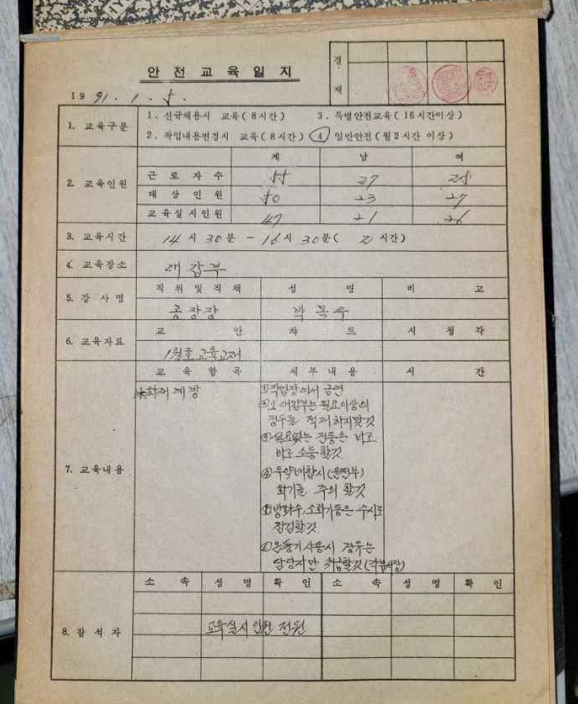 안전교육일지
결재
1991. 1. 5.
1. 교육구분
1. 신규채용시 교육(8시간) 3. 특별안전교육(16시간이상)
2. 작업내용변경시 교육(8시간) ④ 일반안전(월2시간 이상)
2. 교육인원
계 남 여
근로자수 55 27 28
대상인원 50 23 27
교육실시인원 47 21 26
3. 교육시간 14시 30분 - 16시 30분( 2시간)
4. 교육장소
5. 강사명
직위및직책 성명 비고
공장장
6. 교육자료
교안 차트 시청각
1월호 교육교재
7. 교육내용
교육항목 세부내용 시간
화재예방
①작업장에서 금연
적재하지말것
③필요없는 전등은 바로
바로 소등할것
화기를 주의 할것
⑤방화수, 소화기등은 수시로
점검할것
담당자만 취급할것
8. 참석자
소속 성명 확인 소속 성명 확인
교육실시인원 전원